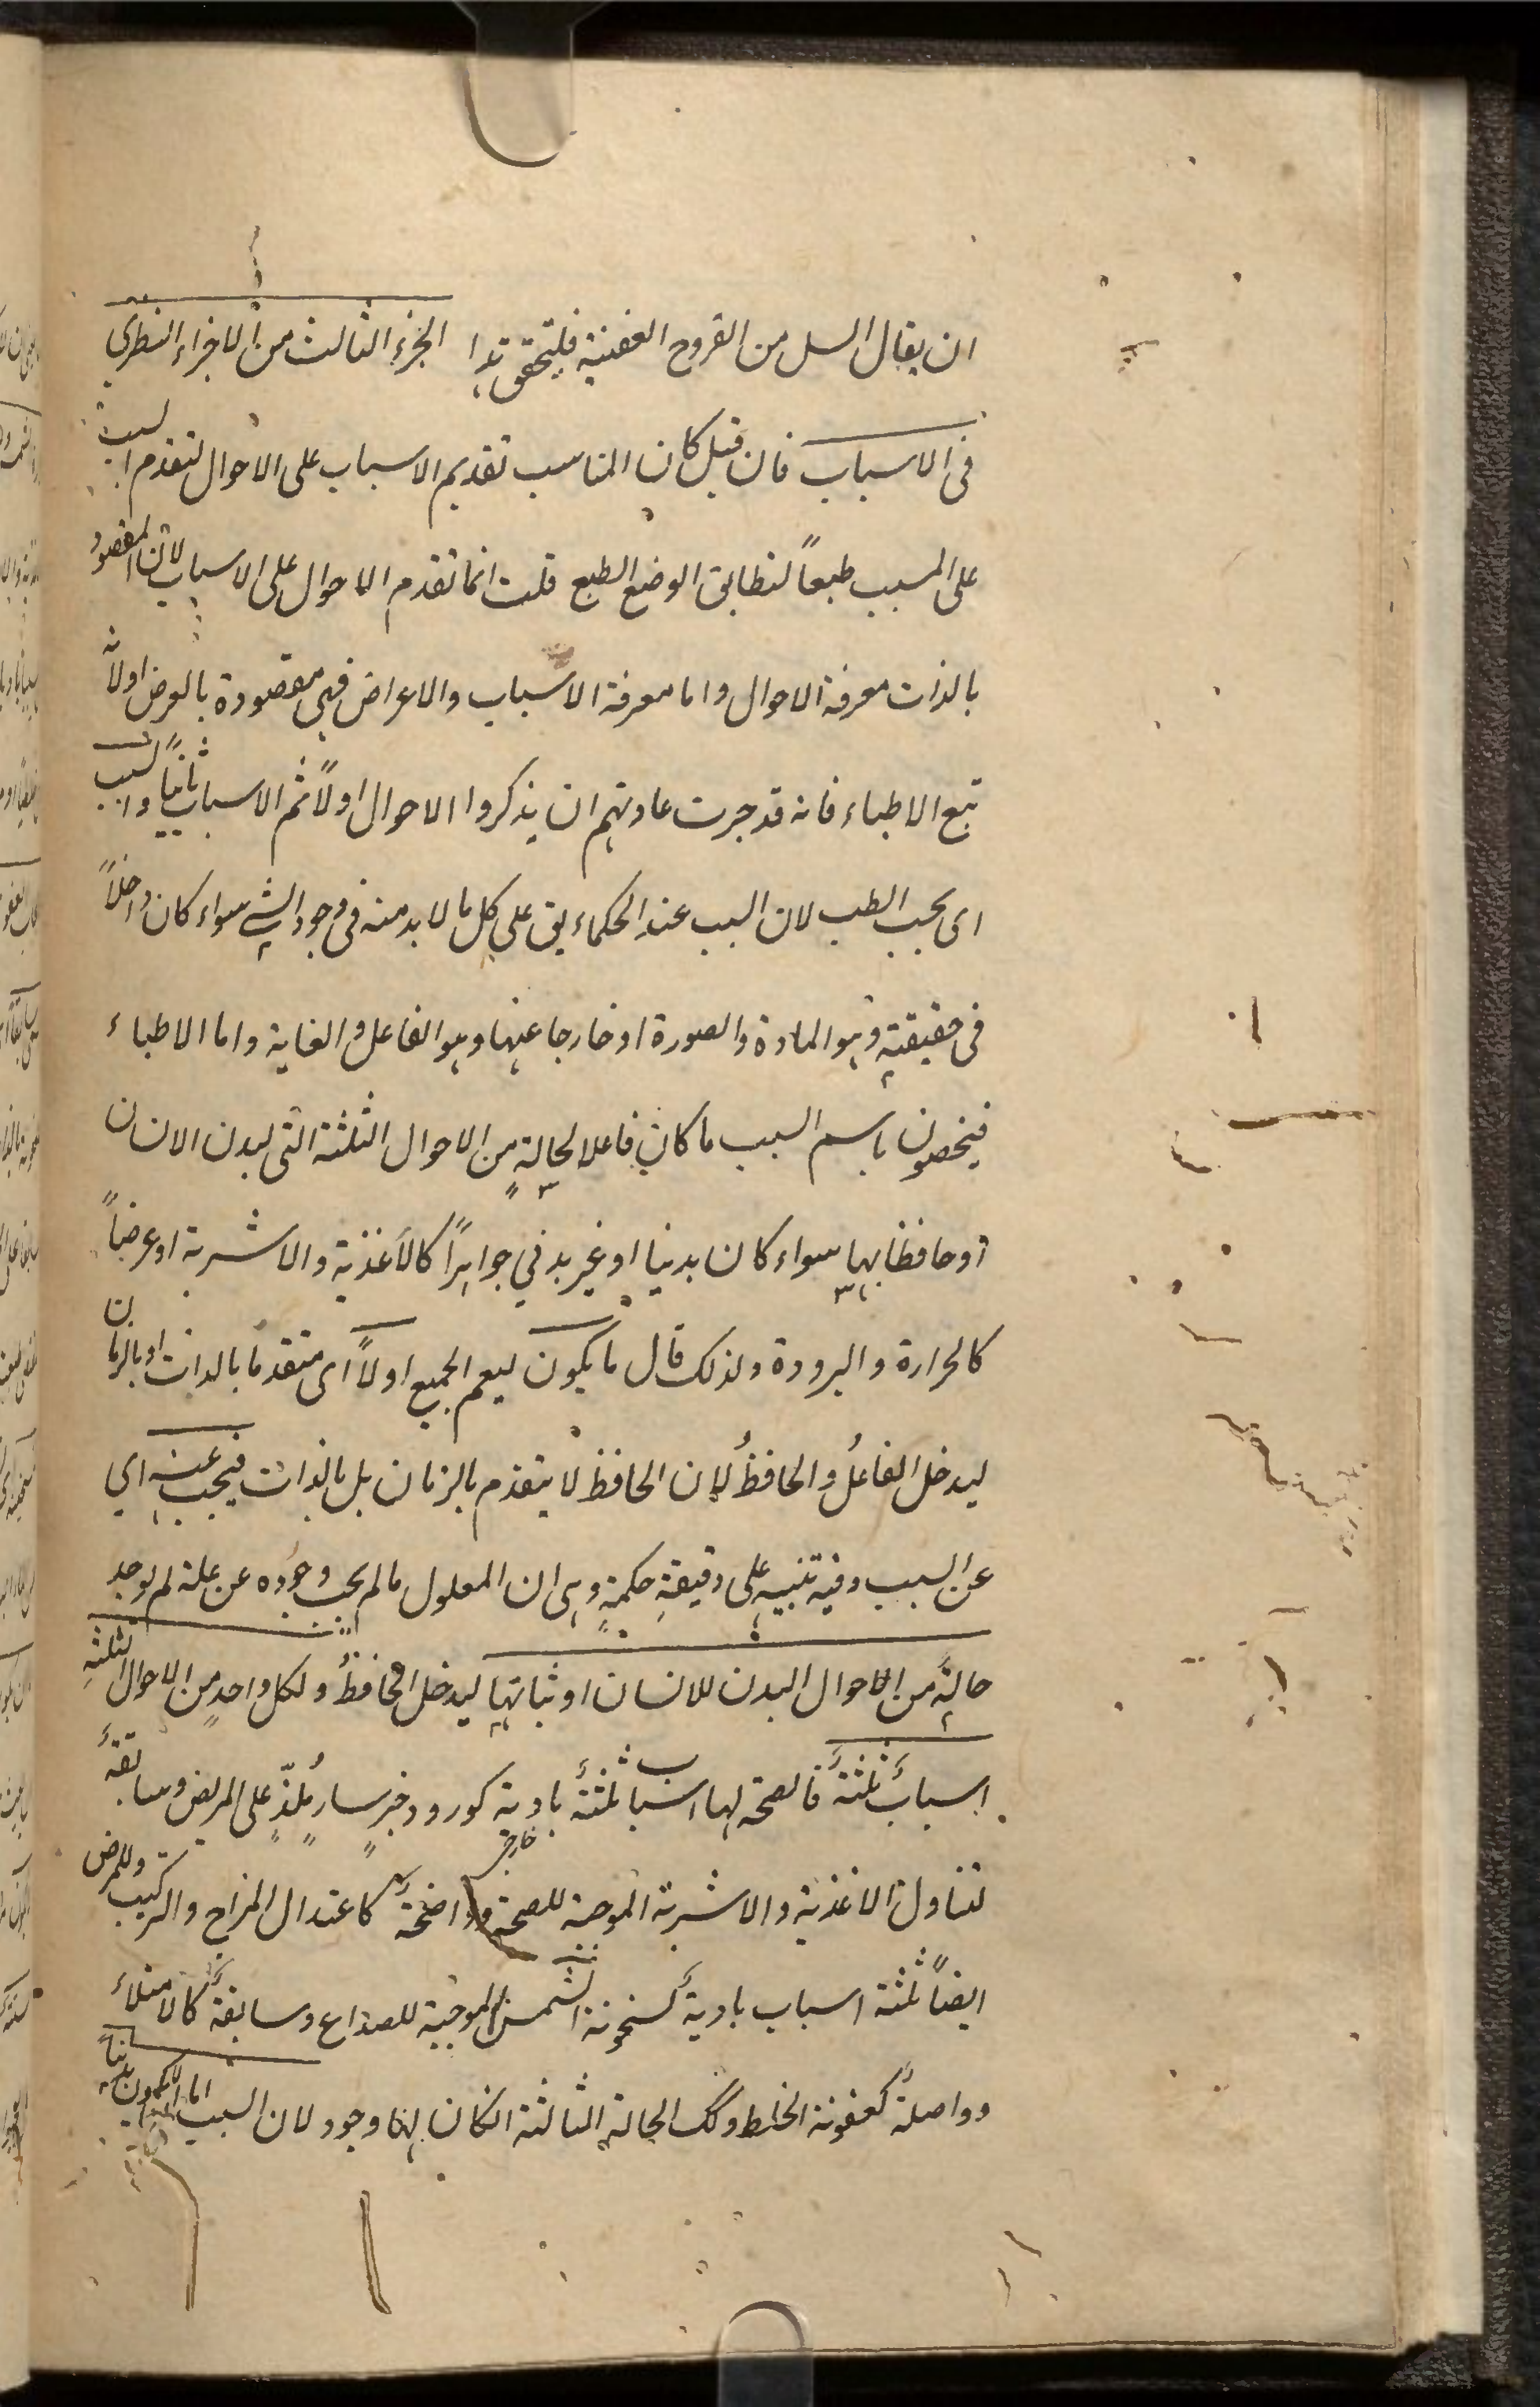 ان يقال السل من القروح العفنية فليتحقق هذا الجزء الثالث من الاجزاء النظري
فى الاسباب فان قيل كان المناسب تقديم الاسباب على الاحوال لتقدم السبب
على المسبب طبعاً لتطابق الوضع الطبع قلت انما تقدم الاحوال على الاسباب لان المقصود
بالذات معرفة الاحوال واما معرفة الاسباب والاعراض فهى مقصودة بالعرض اولانه
تبع الاطباء فانه قد جرت عادتهم ان يذكروا الاحوال اولاً ثم الاسباب ثانياً والسبب
اى بحب الطب لان السبب عند الحكماء يق على كل ما لا بد منه فى وجود الشى سواء كان داخلاً
فى حقيقته وهو المادة والصورة او خارجا عنها وهو الفاعل والغاية واما الاطباء
فيخصون باسم السبب ما كان فاعلا لحالة من الاحوال الثلثة التى لبدن الانسان
او حافظا لها سواء كان بدنيا او غير بدني جوهراً كالاغذية والاشربة او عرضاً
كالحرارة والبرودة ولذلك قال ما يكون ليعم الجميع اولاً اى متقدما بالذات او بالزمان
ليدخل الفاعل والحافظ لان الحافظ لا يتقدم بالزمان بل بالذات فيجب عنه اي
عن السبب وفيه تنبيه على دقيقة حكمة وهى ان المعلول ما لم يجب وجوده عن علة لم يوجد
حالة من الاحوال البدن للانسان او ثباتها ليدخل الحافظ ولكل واحد من الاحوال الثلثة
اسباب ثلثة فالصحة لها اسباب ثلثة بادية كورود خبر سار ملذ على المريض وسابقة
لتناول الاغذية والاشربة الموجبة للصحة واضحة كاعتدال المزاج والتركيب وللمرض
ايضاً ثلثة اسباب بادية كسخونة الشمس الموجبة للصداع وسابقة كالامتلاء
وواصلة كعفونة الخلط وكك الحالة الثالثة انكان لها وجود لان السبب اما لايكون بدنيا